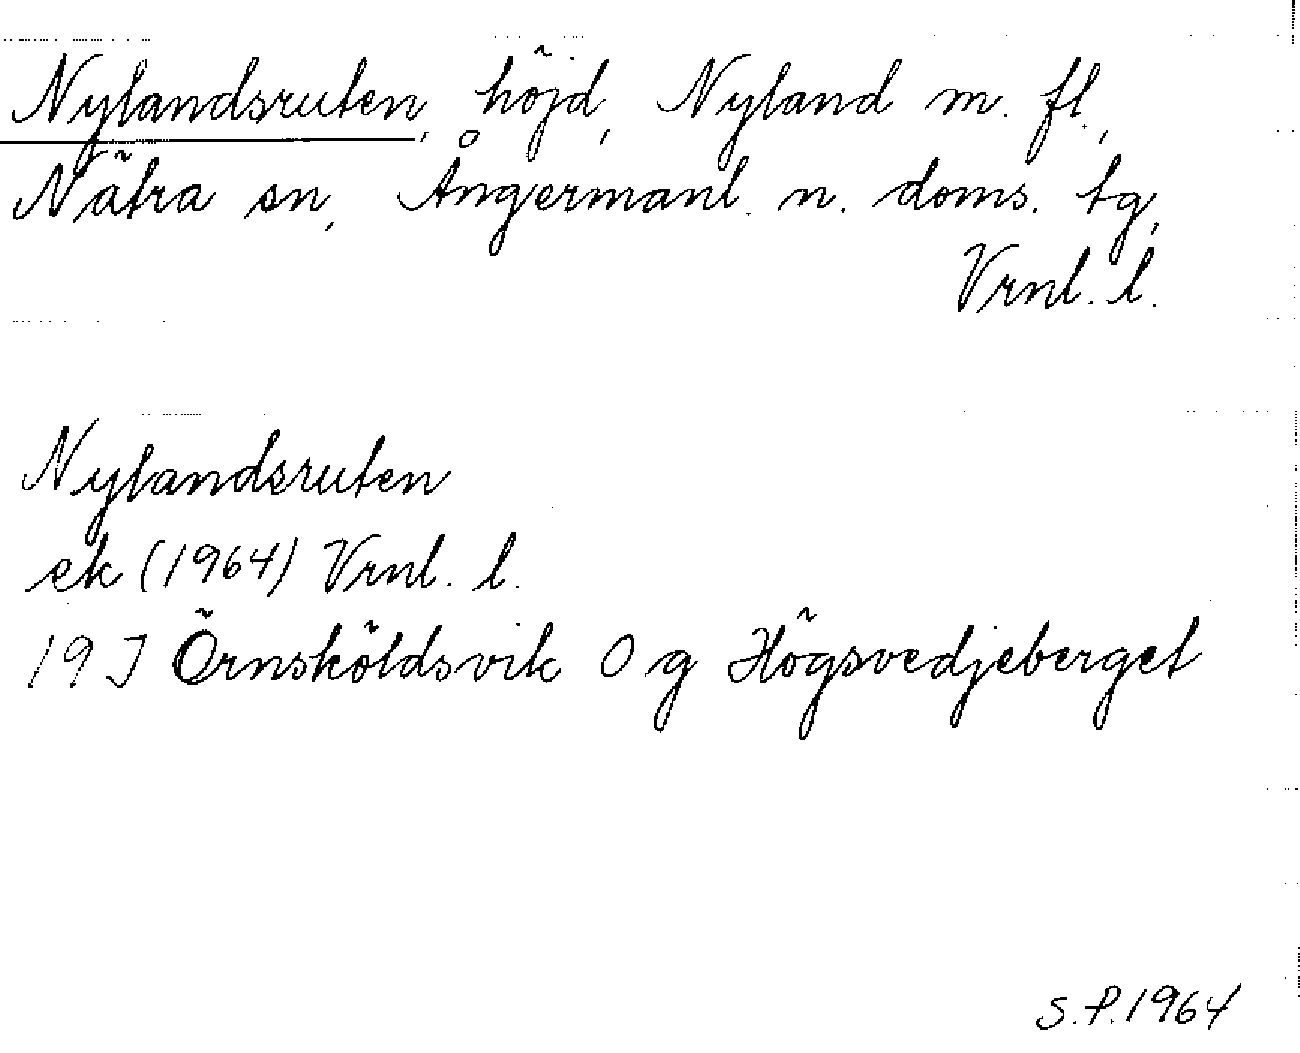 Nylandsruten, höjd, Nyland m. fl.,
Nätra sn, Ångermanl. n. doms. tg,
Vrnl. l.
Nylandsruten
ek (1964) Vrnl. l.
19 J Örnsköldsvik 0 g Högsvedjeberget
S.P. 1964